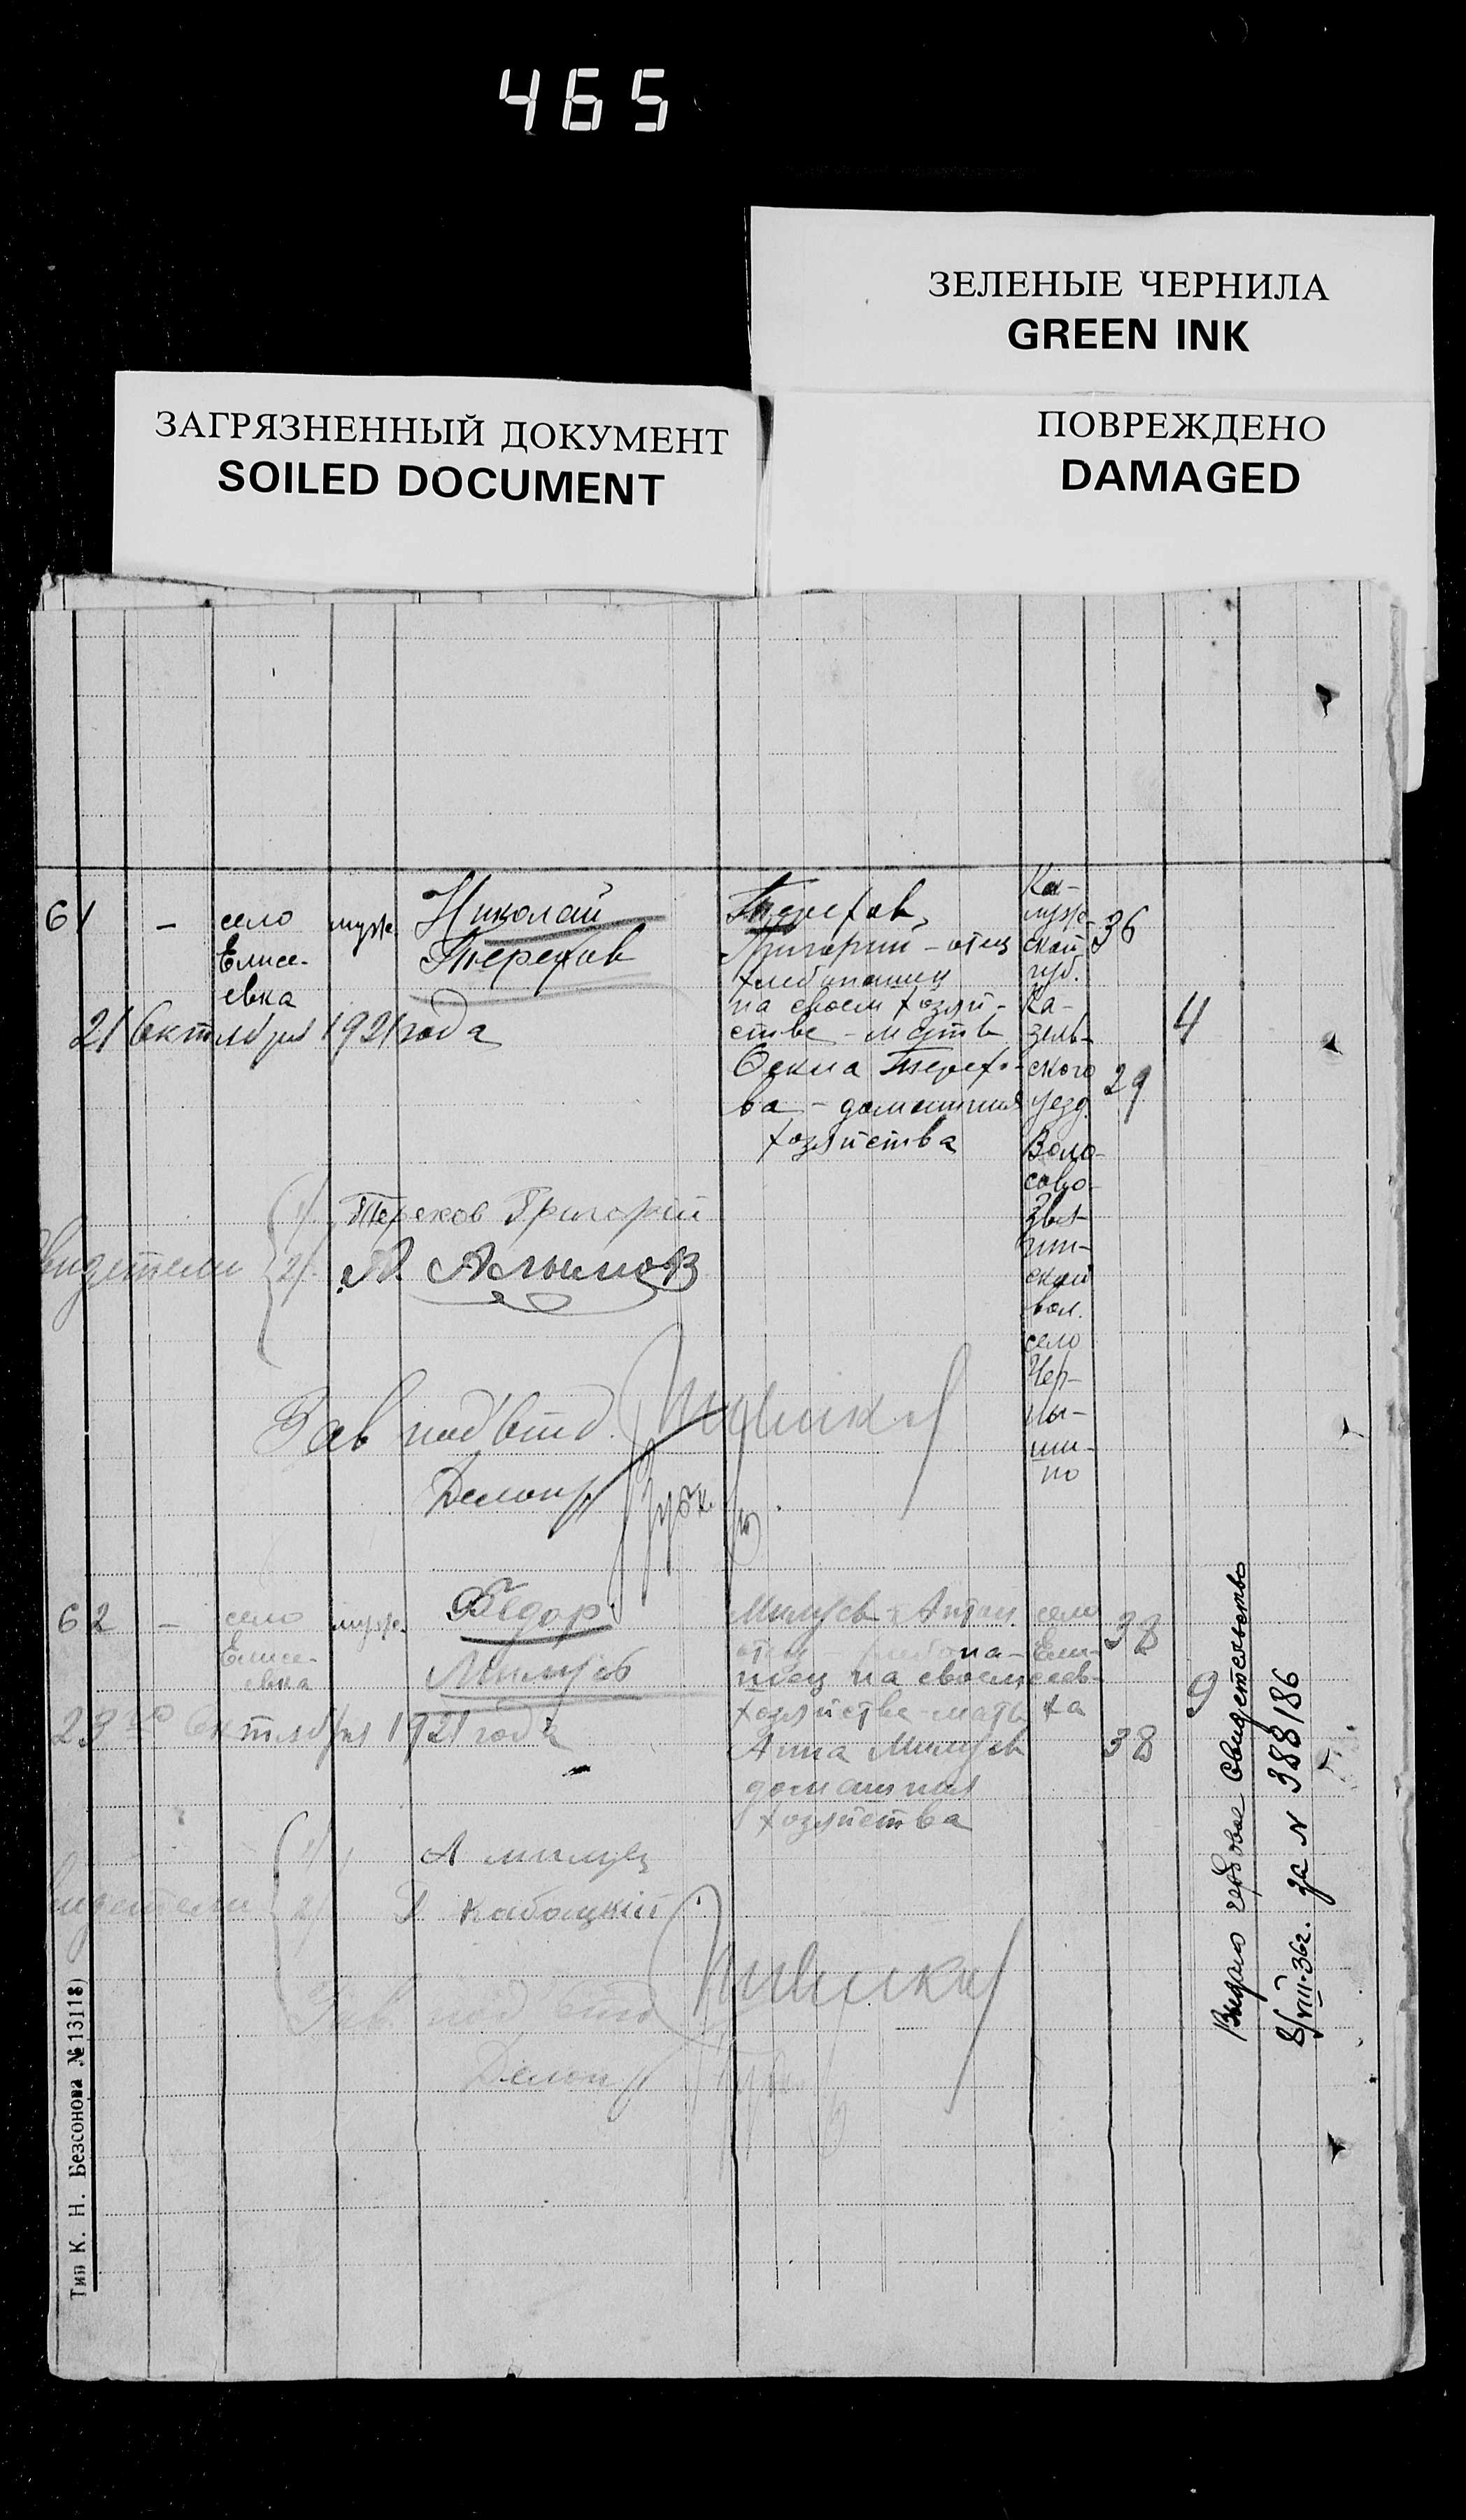 465
ЗЕЛЕНЫЕ ЧЕРНИЛА
GREEN INK
ЗАГРЯЗНЕННЫЙ ДОКУМЕНТ
SOILED DOCUMENT
ПОВРЕЖДЕНО
DAMAGED
61 – село Елисе-евка муж. Николай Терехов
21 Октября 1921 года
Терехов
Григорий – отец
хлебопашец
на своем хозяй-
стве – мать
Терехо-
ва – домашния
хозяйства
Ка-
луж-
ской
губ.
Ка-
зель-
ского
уезд.
вол.
село
Чер-
ны-
ши-
но
36
29
4
Свидетели
1/ Терехов Григорий
2/ А. Алымов
Зав подотд.
Делопр
62 – село Елисе-евка муж. Федор
23го Октября 1921 года
отец
на своем
хозяйстве мать
Анна
домашния
хозяйства
село
Ели-
сеев-
ка
38
38
9
Свидетели
1/
2/ Кабацкий
Зав. подотд
Делопр
Выдано гербовое свидетельство
8/VIII-36г. за № 388186
Тип К. Н. Безсонова № 13118)